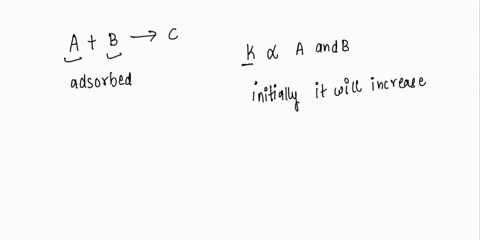 A + B → C
adsorbed
K ∝ A and B
initially it will increase